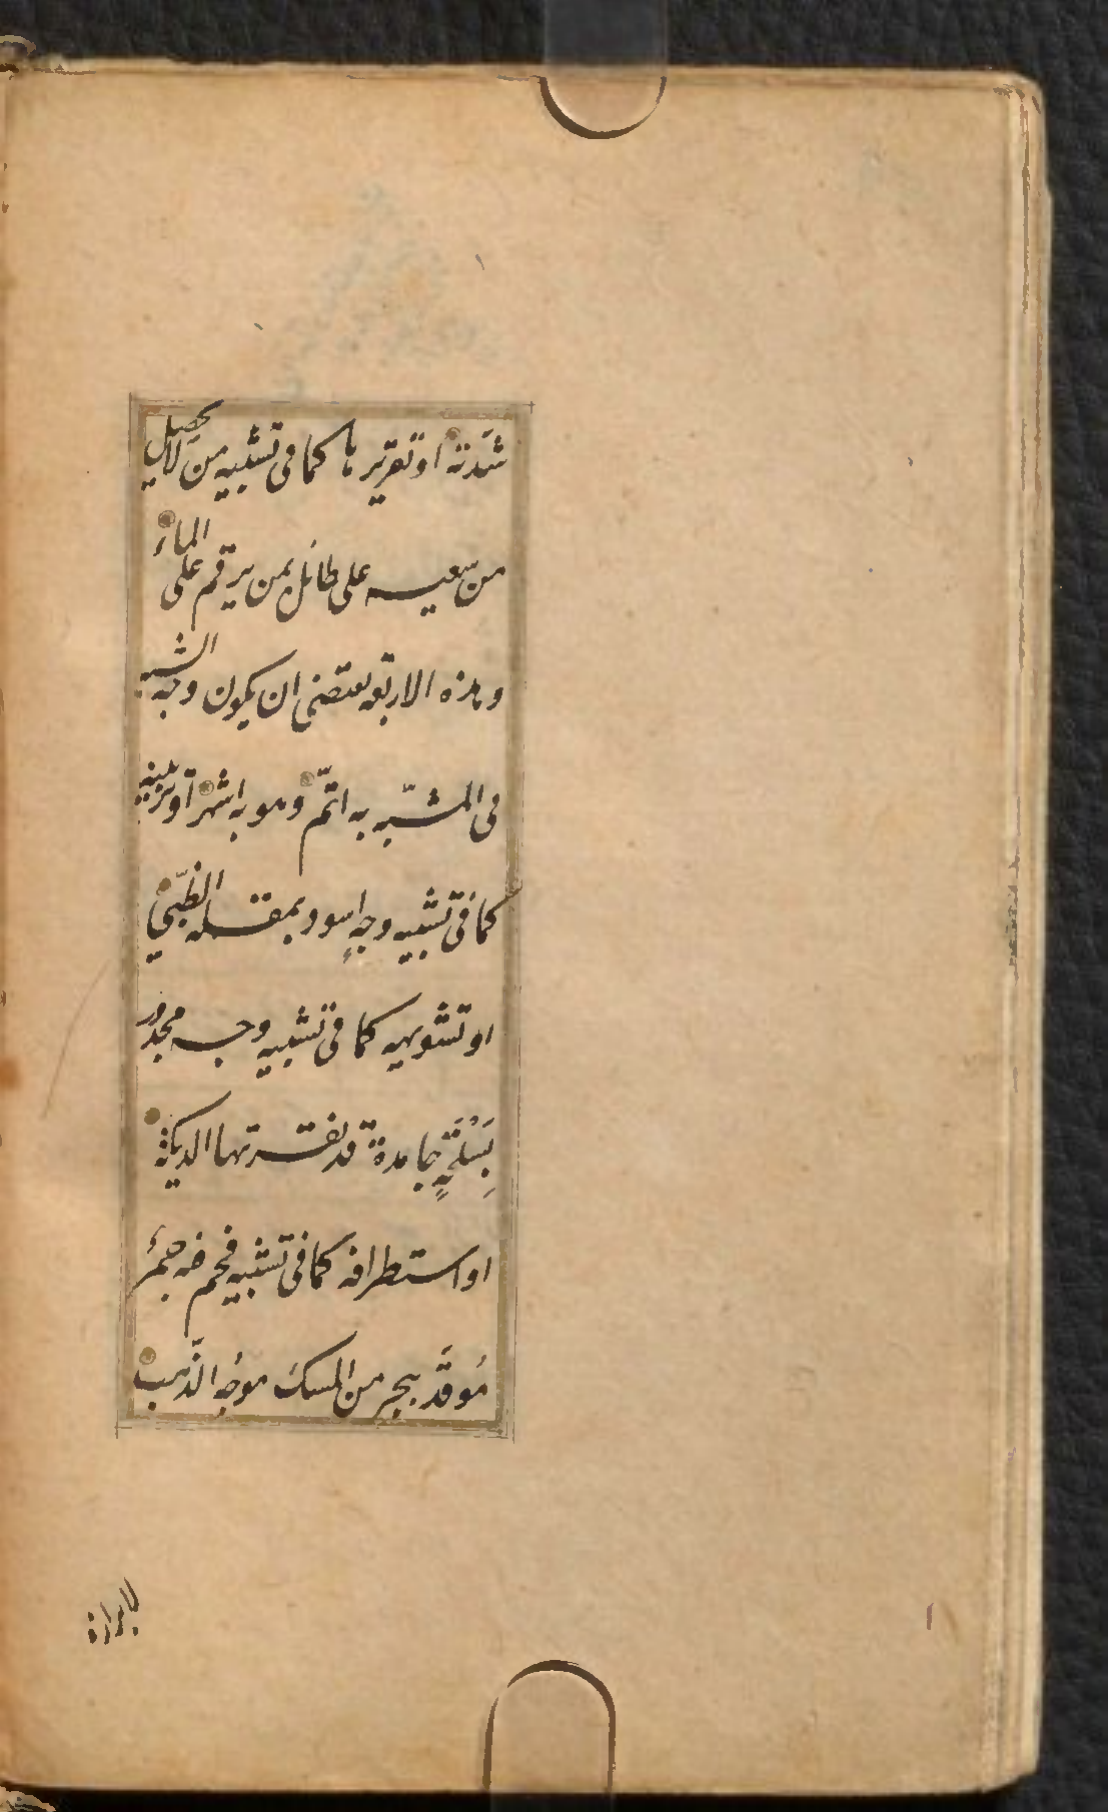 شدته او تقريرها كما فى تشبيه من لا يحصل
من سعيه على طائل بمن يرقم على الماء
وهذه الاربعة تقتضى ان يكون وجه الشبه
فى المشبّه به اتمّ وهو به اشهر او تزيينه
كما فى تشبيه وجهٍ اسود بمقلة الظّبي
او تشويهه كما فى تشبيه وجه مجدور
بِسَلْحَةٍ جامدة قد نقرتها الديكة
او استطرافه كما فى تشبيه فحم فيه جمر
مُوقَد ببحر من المسك موجُه الذّهب
لابرازه